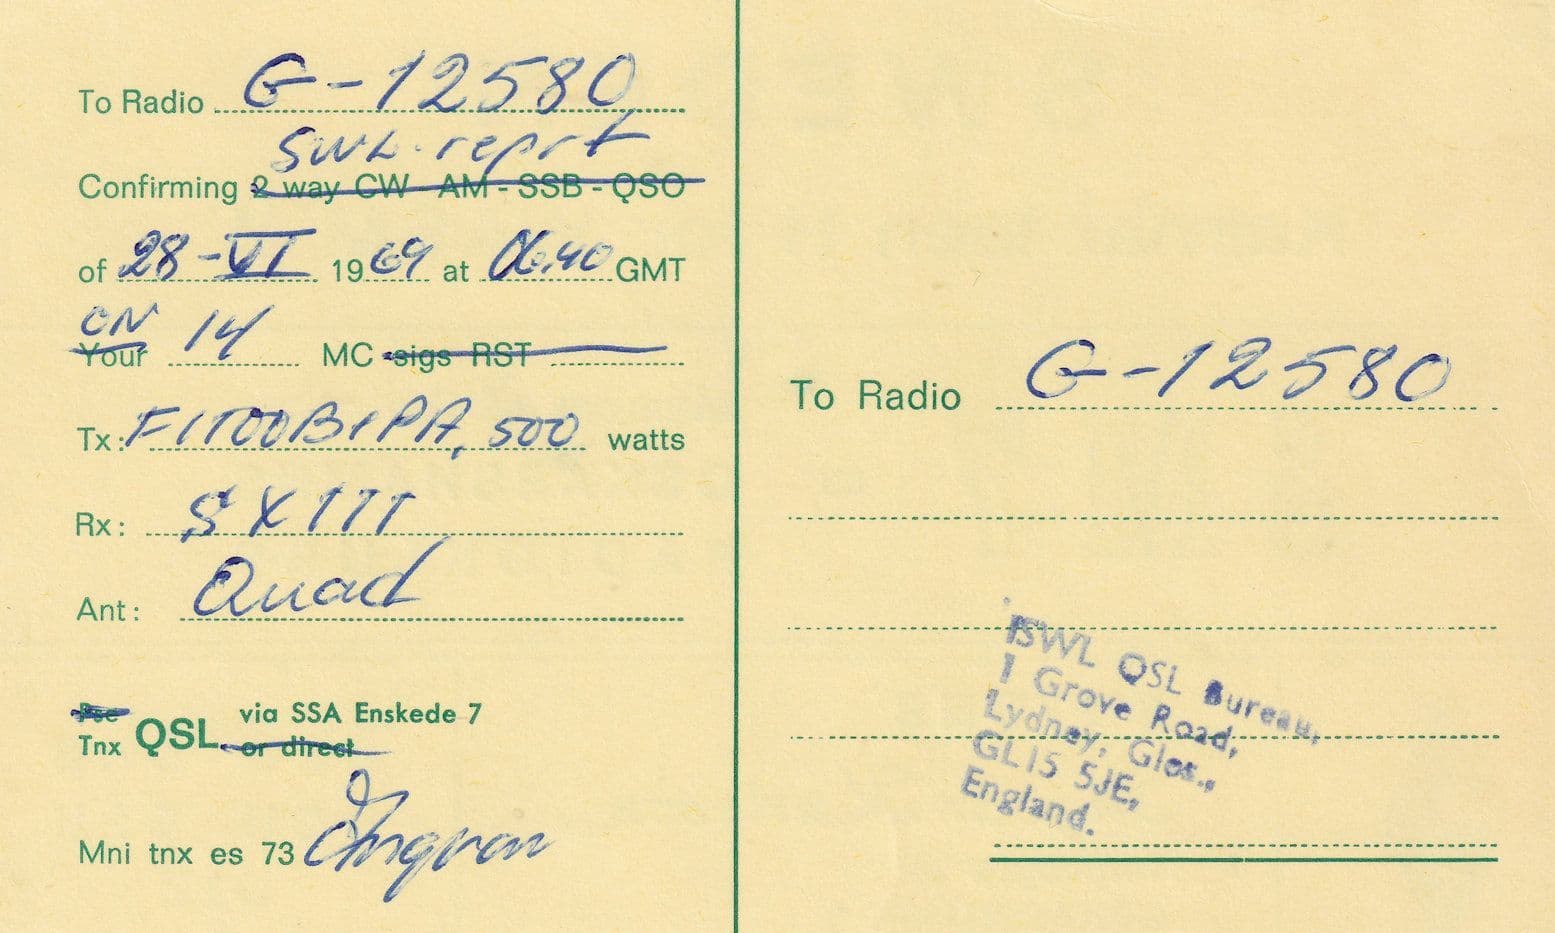 To Radio G-12580
SWL-reprt
Confirming 2 way CW - AM - SSB - QSO
of 28-VI 1969 at 06.40 GMT
ON
Your 14 MC sigs RST
Tx: FL100B+PA, 500 watts
Rx: SX111
Ant: Quad
Pse
Tnx QSL via SSA Enskede 7
or direct
Mni tnx es 73 Ingvar
To Radio G-12580
ISWL QSL Bureau,
1 Grove Road,
Lydney, Glos.,
GL15 5JE,
England.